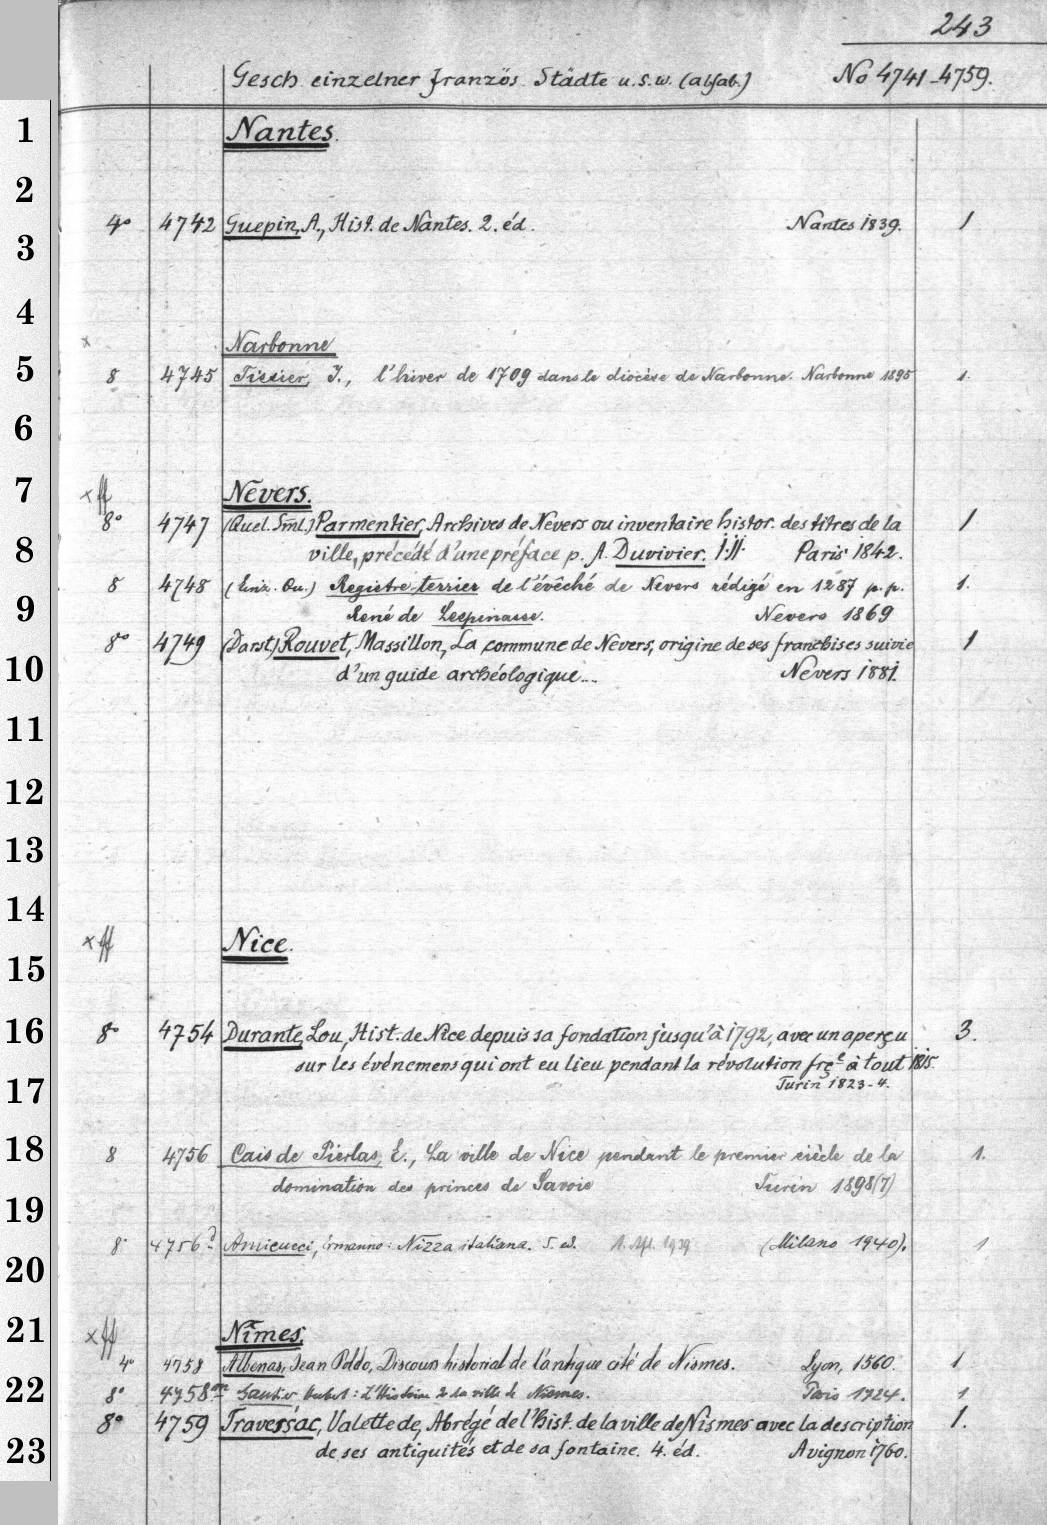 243
Gesch. einzelner französ. Städte u.s.w. (alfab.) No 4741-4759.
1
Nantes.
2
4° 4742 Guepin, A., Hist. de Nantes. 2. éd. Nantes 1839. 1
3
4
x Narbonne
5
8 4745 Tissier, J., l'hiver de 1709 dans le diocèse de Narbonne. Narbonne 1895 1.
6
7
x ff Nevers.
8° 4747 (Quel. Sml.) Parmentier, Archives de Nevers ou inventaire histor. des titres de la 1
8
ville, précédé d'une préface p. A. Duvivier. I.II. Paris 1842.
8 4748 (Einz. Qu.) Registre-terrier de l'évêché de Nevers rédigé en 1287 p.p. 1.
9
René de Lespinasse. Nevers 1869
8° 4749 (Darst.) Rouvet, Massillon, La commune de Nevers, origine de ses franchises suivie 1
10
d'un guide archéologique... Nevers 1881.
11
12
13
14
x ff Nice.
15
16
8° 4754 Durante, Lou, Hist. de Nice depuis sa fondation jusqu'à 1792, avec un aperçu 3.
sur les événemens qui ont eu lieu pendant la révolution frçe à tout 1815.
17
Turin 1823-4.
18
8 4756 Cais de Pierlas, E., La ville de Nice pendant le premier siècle de la 1.
domination des princes de Savoie Turin 1898(7)
19
8° 4756 Amicucci, Ermanno: Nizza italiana. 5. ed. (Milano 1940). 1
20
21
x ff Nîmes.
4° 4758 Albenas, Jean Poldo, Discours historial de l'antique cité de Nismes. Lyon, 1560. 1
22
8° 4758 Gautier, Hubert: L'Histoire de la ville de Nismes. Paris 1724. 1
8° 4759 Traversac, Valette de, Abrégé de l'hist. de la ville de Nismes avec la description 1.
23
de ses antiquités et de sa fontaine. 4. éd. Avignon 1760.